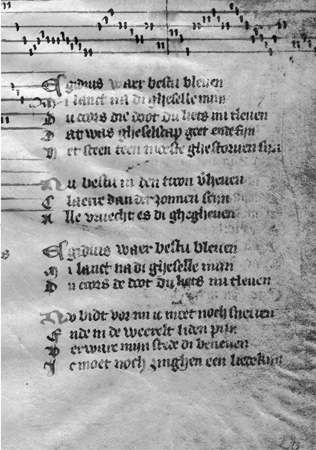 Egidius waer bestu bleuen
Mi lanct na di gheselle mijn
Du coers die doot du liets mi tleuen
Dat was gheselscap goet ende fijn
Het sceen teen moeste ghestoruen sijn
Nu bestu in den troon verheuen
Claerre dan der zonnen scijn
Alle vruecht es di ghegheuen
Egidius waer bestu bleuen
Mi lanct na di gheselle mijn
Du coers de doot du liets mi tleuen
Nu bidt vor mi ic moet noch sneuen
Ende in de weerelt liden pijn
Verware mijn stede di beneuen
Ic moet noch zinghen een liedekijn
28